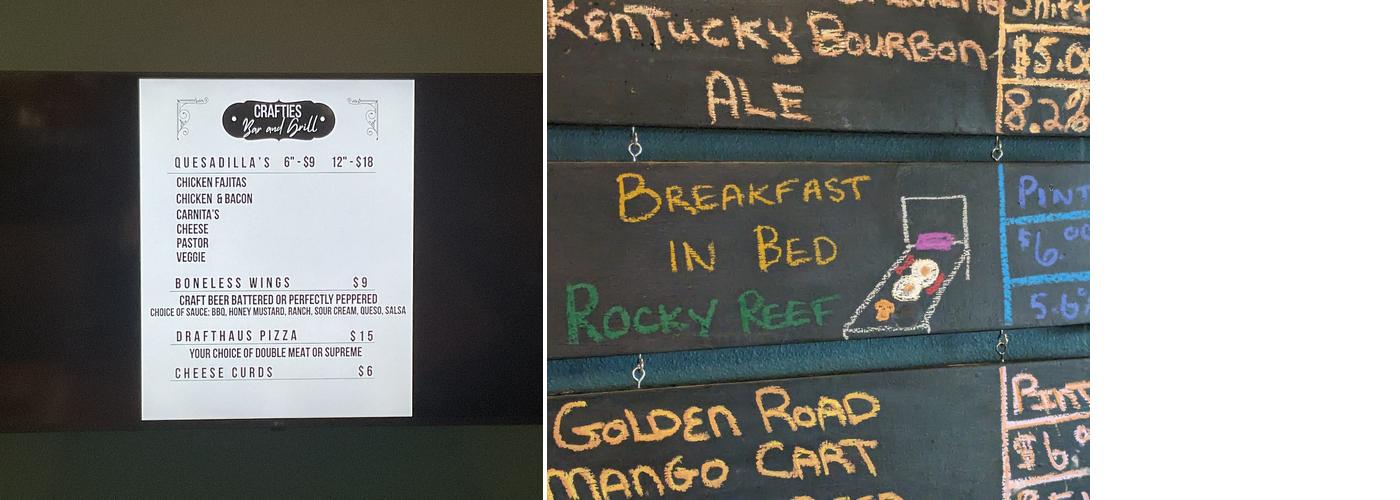 CRAFTIES
Bar and Grill
QUESADILLA'S 6" - $9 12" - $18
CHICKEN FAJITAS
CHICKEN & BACON
CARNITA'S
CHEESE
PASTOR
VEGGIE
BONELESS WINGS $9
CRAFT BEER BATTERED OR PERFECTLY PEPPERED
CHOICE OF SAUCE: BBQ, HONEY MUSTARD, RANCH, SOUR CREAM, QUESO, SALSA
DRAFTHAUS PIZZA $15
YOUR CHOICE OF DOUBLE MEAT OR SUPREME
CHEESE CURDS $6
KENTUCKY BOURBON
ALE
$5.00
8.2%
BREAKFAST
IN BED
ROCKY REEF
PINT
$6.00
5.6%
GOLDEN ROAD
MANGO CART
PINT
$6.0